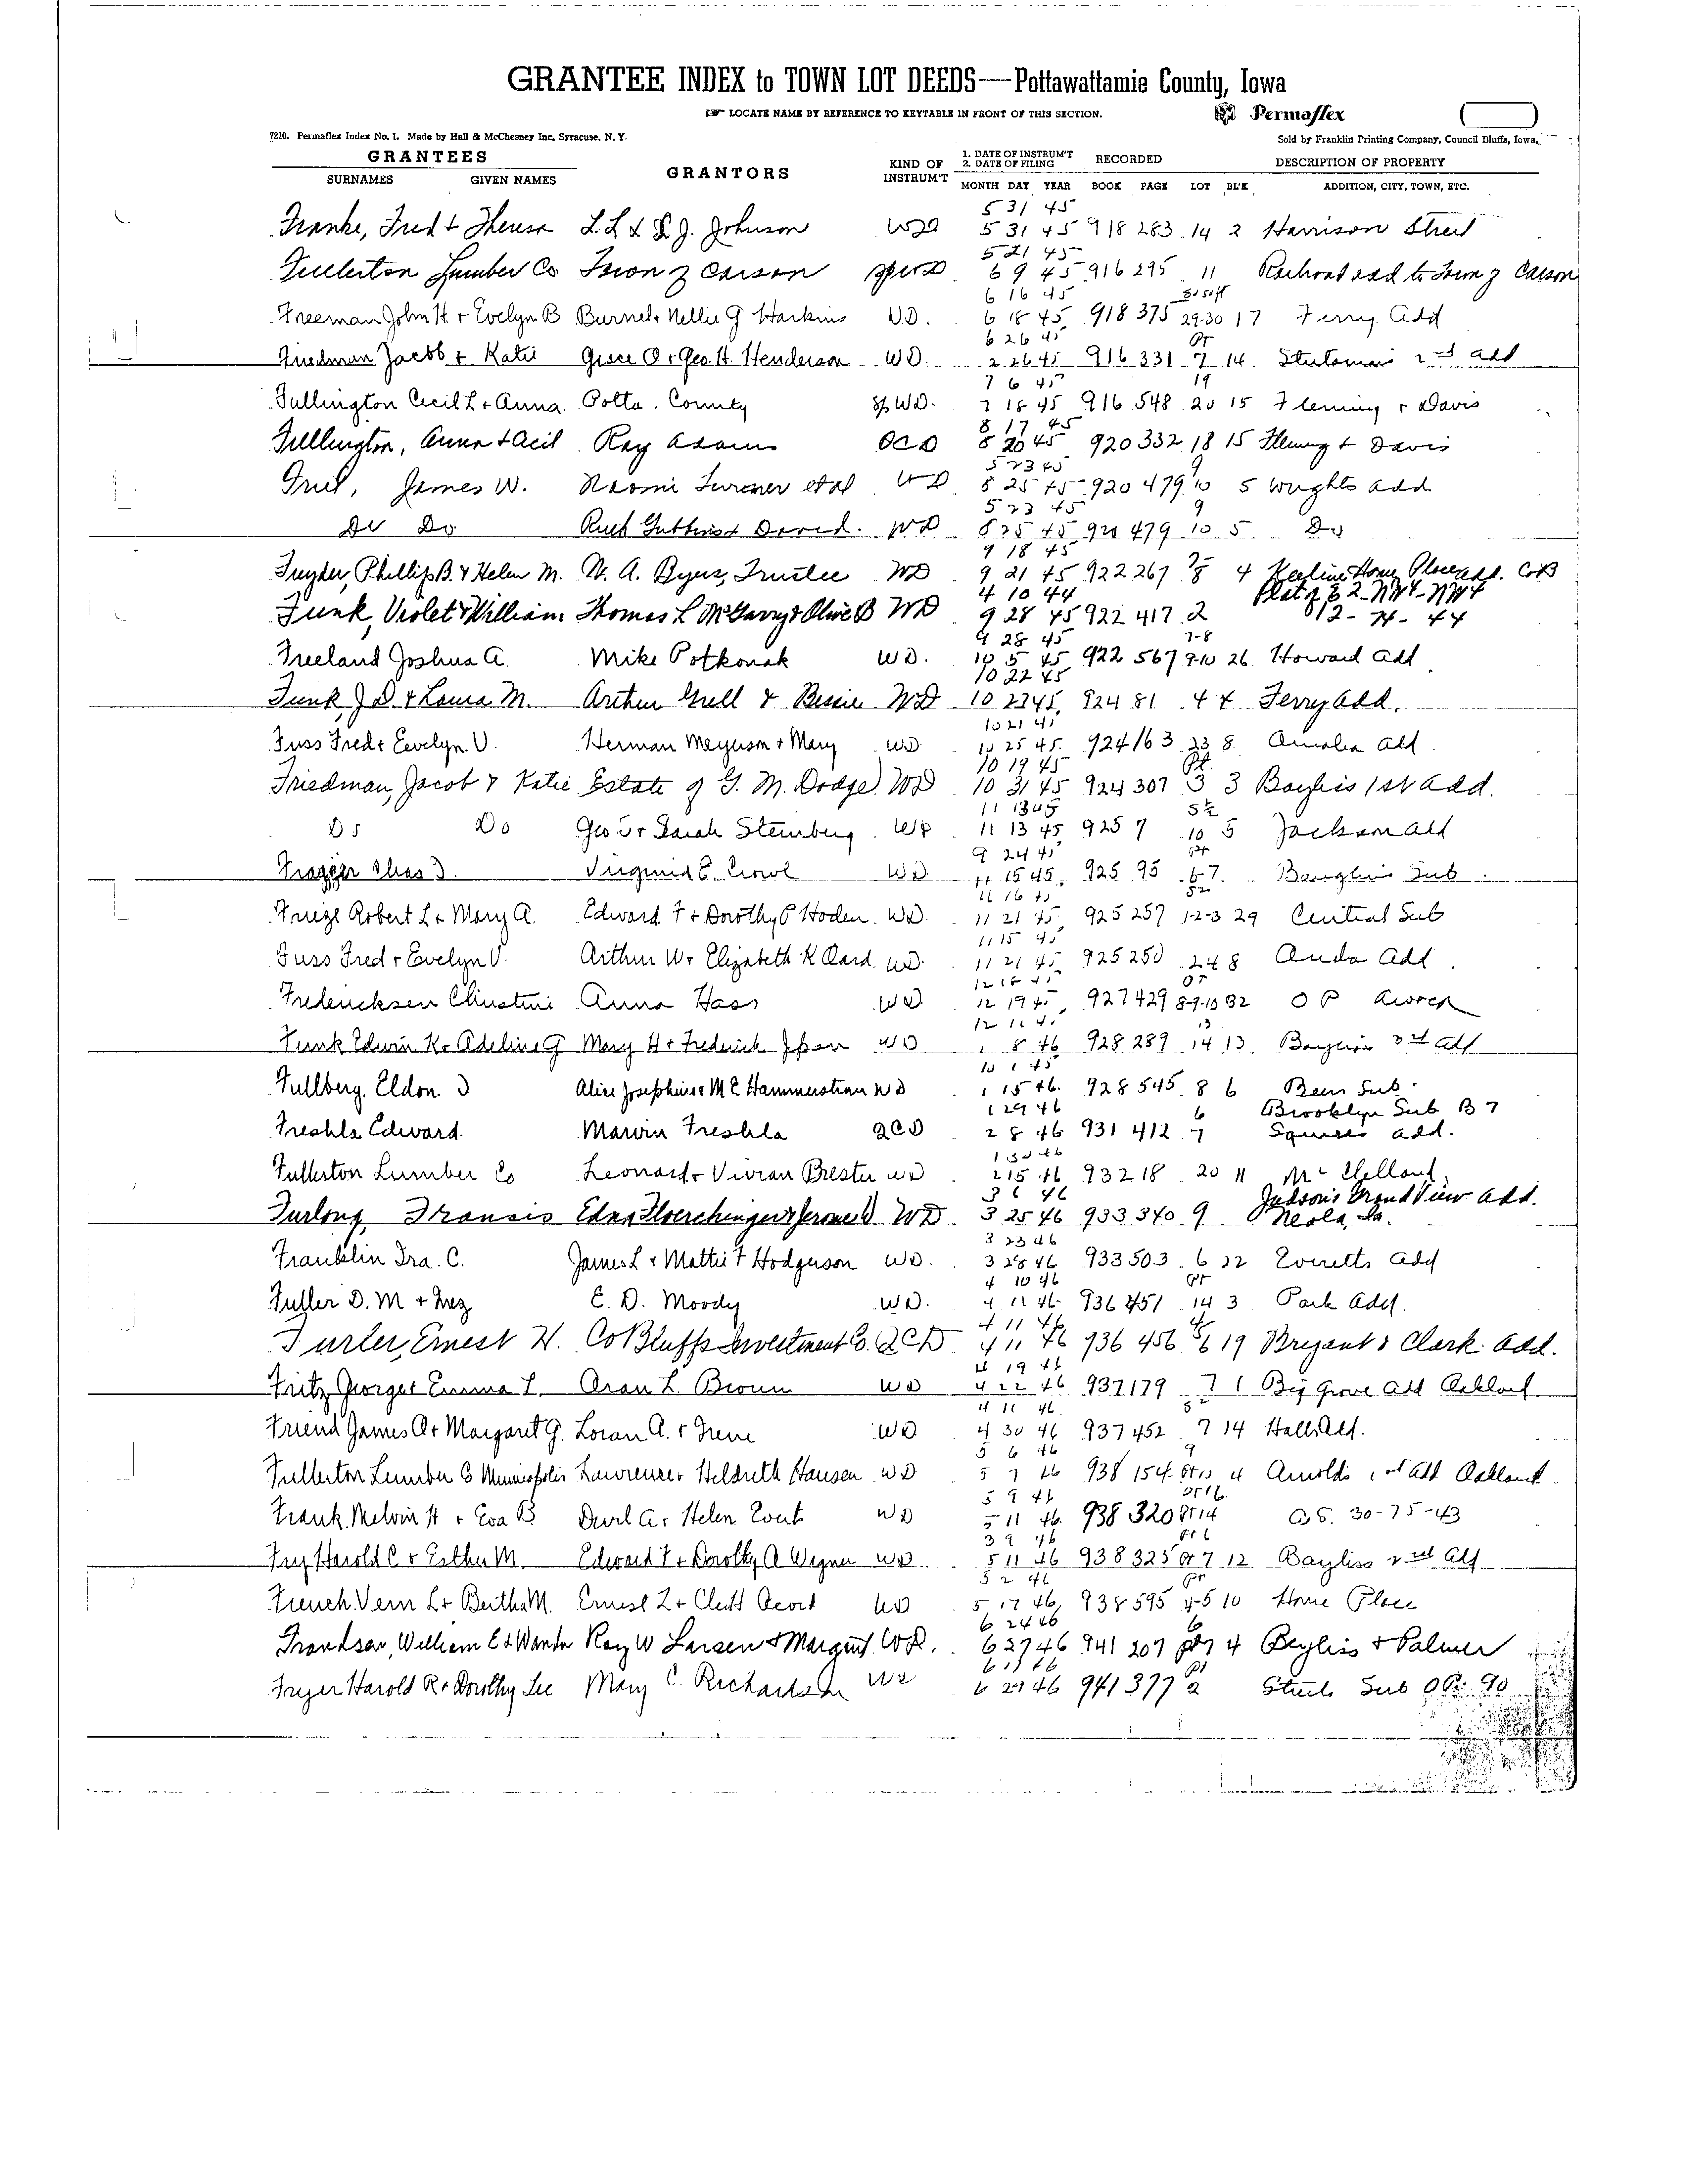 GRANTEE INDEX to TOWN LOT DEEDS—Pottawattamie County, Iowa
LOCATE NAME BY REFERENCE TO KEYTABLE IN FRONT OF THIS SECTION.
Permaflex
7210. Permaflex Index No. 1. Made by Hall & McChesney Inc, Syracuse, N. Y.
Sold by Franklin Printing Company, Council Bluffs, Iowa.
GRANTEES
SURNAMES GIVEN NAMES
GRANTORS
KIND OF INSTRUM'T
1. DATE OF INSTRUM'T
2. DATE OF FILING
MONTH DAY YEAR
RECORDED
BOOK PAGE LOT BL'K
DESCRIPTION OF PROPERTY
ADDITION, CITY, TOWN, ETC.
5 31 45
Franke, Fred + Theresa L.L & J. Johnson WD 5 31 45 918 283 14 2 Harrison Street
5 21 45
Fullerton Lumber Co Town of Carson 6 9 45 916 295 11 Railroad add to Town of Carson
6 16 45
Freeman John H. + Evelyn B Burnel + Nellie G Harkins W.D. 6 18 45 918 375 29-30 17 Ferry Add
6 26 45 Pt
Friedman Jacob + Katie Grace O + Geo. H. Henderson WD. 2 26 45 916 331 7 14 2nd add
7 6 45 19
Fullington Cecil L + Anna Potta. County Sp WD. 7 18 45 916 548 20 15 Fleming + Davis
8 17 45
Fullington, Anna + Cecil Ray Adams QCD 8 20 45 920 332 18 15 Fleming + Davis
5 23 45 9
James W. Naomi et al WD 8 25 45 920 479 10 5 Wrights Add
5 23 45 9
Do Do Ruth David. WD 8 25 45 920 479 10 5 Do
9 18 45
Phillip B. & Helen M. W. A. Byers, Trustee WD 9 21 45 922 267 8 4 Keeline Home Place Add. CoB
4 10 44 Plat of E 2-NW4-NW4
Funk, Violet & William Thomas L McGarvy & Olive B WD 9 28 45 922 417 2 12-74-44
9 28 45 7-8
Freeland Joshua A. Mike Potkonak WD. 10 5 45 922 567 9-10 26 Howard Add
10 22 45
Funk J D + Louia M. Arthur Grell & Bessie WD 10 27 45 924 81 4 Ferry Add.
10 21 45
Fuss Fred + Eevelyn V. Herman Meyerson + Mary WD 10 25 45 924 163 23 8 Add
10 19 45 Pt.
Friedman, Jacob & Katie Estate of G. M. Dodge WD 10 31 45 924 307 3 3 Bayliss 1st Add.
11 13 45 S½
Do Do Geo S + Sarah Steinberg WD 11 13 45 925 7 10 5 Jackson Add
9 24 45
Chas Virginia E. Crowl WD 11 15 45 925 95 6-7 Sub
11 16 45
Robert L + Mary A. Edward F + Dorothy P Hoden WD. 11 21 45 925 257 1-2-3 29 Central Sub
11 15 45
Fuss Fred + Evelyn V. Arthur W + Elizabeth K WD 11 21 45 925 250 24 8 Add
12 18 45
Fredericksen Christine Anna Hass WD 12 19 45 927 429 8-9-10 32 O P Avoca
12 11 45 13
Funk Edwin K + Adeline G Mary H + Frederick WD 1 8 46 928 289 14 13 Bayliss 3rd Add
10 1 45
Fullberg, Eldon Alice Josephine & M E WD 1 15 46 928 545 8 6 Beers Sub
1 29 46 6 Brooklyn Sub B 7
Freshla Edward. Marvin Freshla QCD 2 8 46 931 412 7 Squires add.
1 30 46
Fullerton Lumber Co Leonard + Vivian Brester WD 2 15 46 932 18 20 11 McClelland
3 6 46 Judson's Grand View Add.
Furlong, Francis Edna & Jerome WD 3 25 46 933 340 9 Neola, Ia.
3 23 46
Franklin Ira. C. James L + Mattie F Hodgerson WD. 3 28 46 933 503 6 22 Everetts Add
4 10 46 Pt
Fuller D. M + Inez E. D. Moody WD. 4 11 46 936 451 14 3 Park Add
4 11 46
Furler, Ernest H. Co Bluffs Investment Co. QCD 4 11 46 936 456 19 Bryant & Clark Add.
4 19 46
Fritz George + Emma L. L. Brown WD 4 22 46 937 179 7 1 Big Grove Add Oakland
4 11 46
Friend James A + Margaret G. Loran A. + Irene WD 4 30 46 937 452 7 14 Halls Add.
5 6 46 9
Fullerton Lumber Co Minneapolis Lawrence + Hildreth Hansen WD 5 7 46 938 154 4 Arnolds 1st Add Oakland
5 9 46 Pt 16
Frank Melvin H + Eva B. Durl A + Helen WD 5 11 46 938 320 Pt 14 A.S. 30-75-43
3 9 46 Pt 6
Fry Harold C + Esther M. Edward F + Dorothy A WD 5 11 46 938 325 Pt 7 12 Bayliss 2nd Add
5 2 46 Pt
French Vern L + Bertha M. Ernest L + WD 5 17 46 938 595 4-5 10 Home Place
6 24 46 6
Frandsen, William E & Wanda Ray W Larsen & Margaret WD. 6 27 46 941 207 Pt 7 4 Bayliss & Palmer
Fryer Harold R + Dorothy Lee Mary C. Richardson WD 6 29 46 941 377 2 Sub O.P. 90